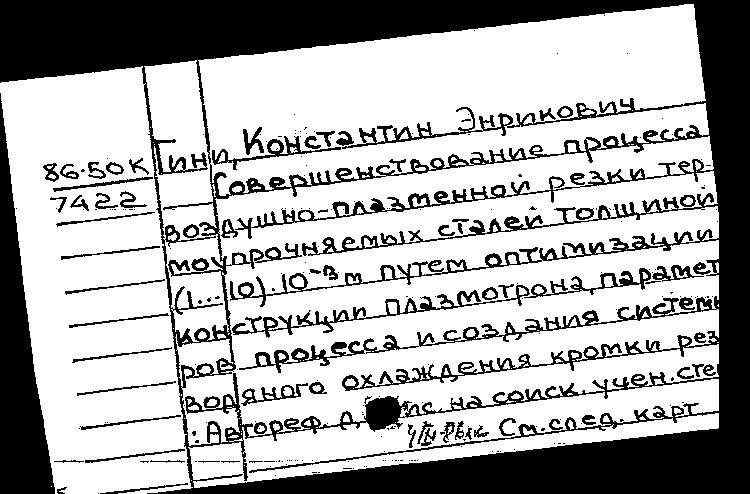 86-50К
7422
Тини, Константин Энрикович
Совершенствование процесса
воздушно-плазменной резки тер-
моупрочняемых сталей толщиной
(1...10).10⁻³м путем оптимизации
конструкции плазмотрона, парамет
ров процесса и создания систем
водяного охлаждения кромки рез
: Автореф. д нс. на соиск. учен. сте
См. след. карт